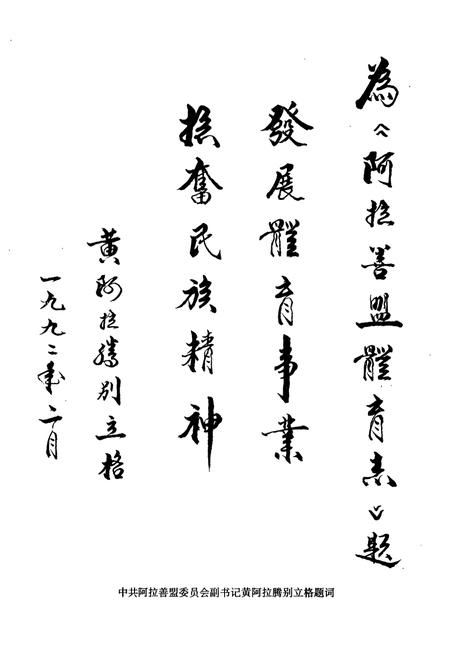 為《阿拉善盟體育志》題
發展體育事業
振奮民族精神
黄阿拉腾别立格
一九九二年二月
中共阿拉善盟委员会副书记黄阿拉腾别立格题词